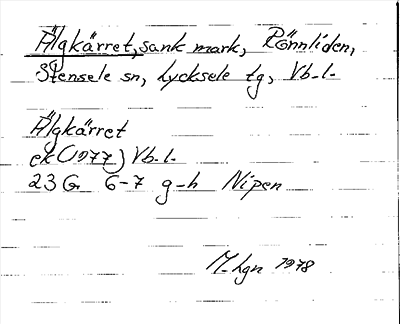 Älgkärret, sank mark, Rönnliden,
Stensele sn, Lycksele tg, Vb.l.
Älgkärret
ek (1977) Vb.l.
23 G 6-7 g-h Nipen
M.hgn 1978